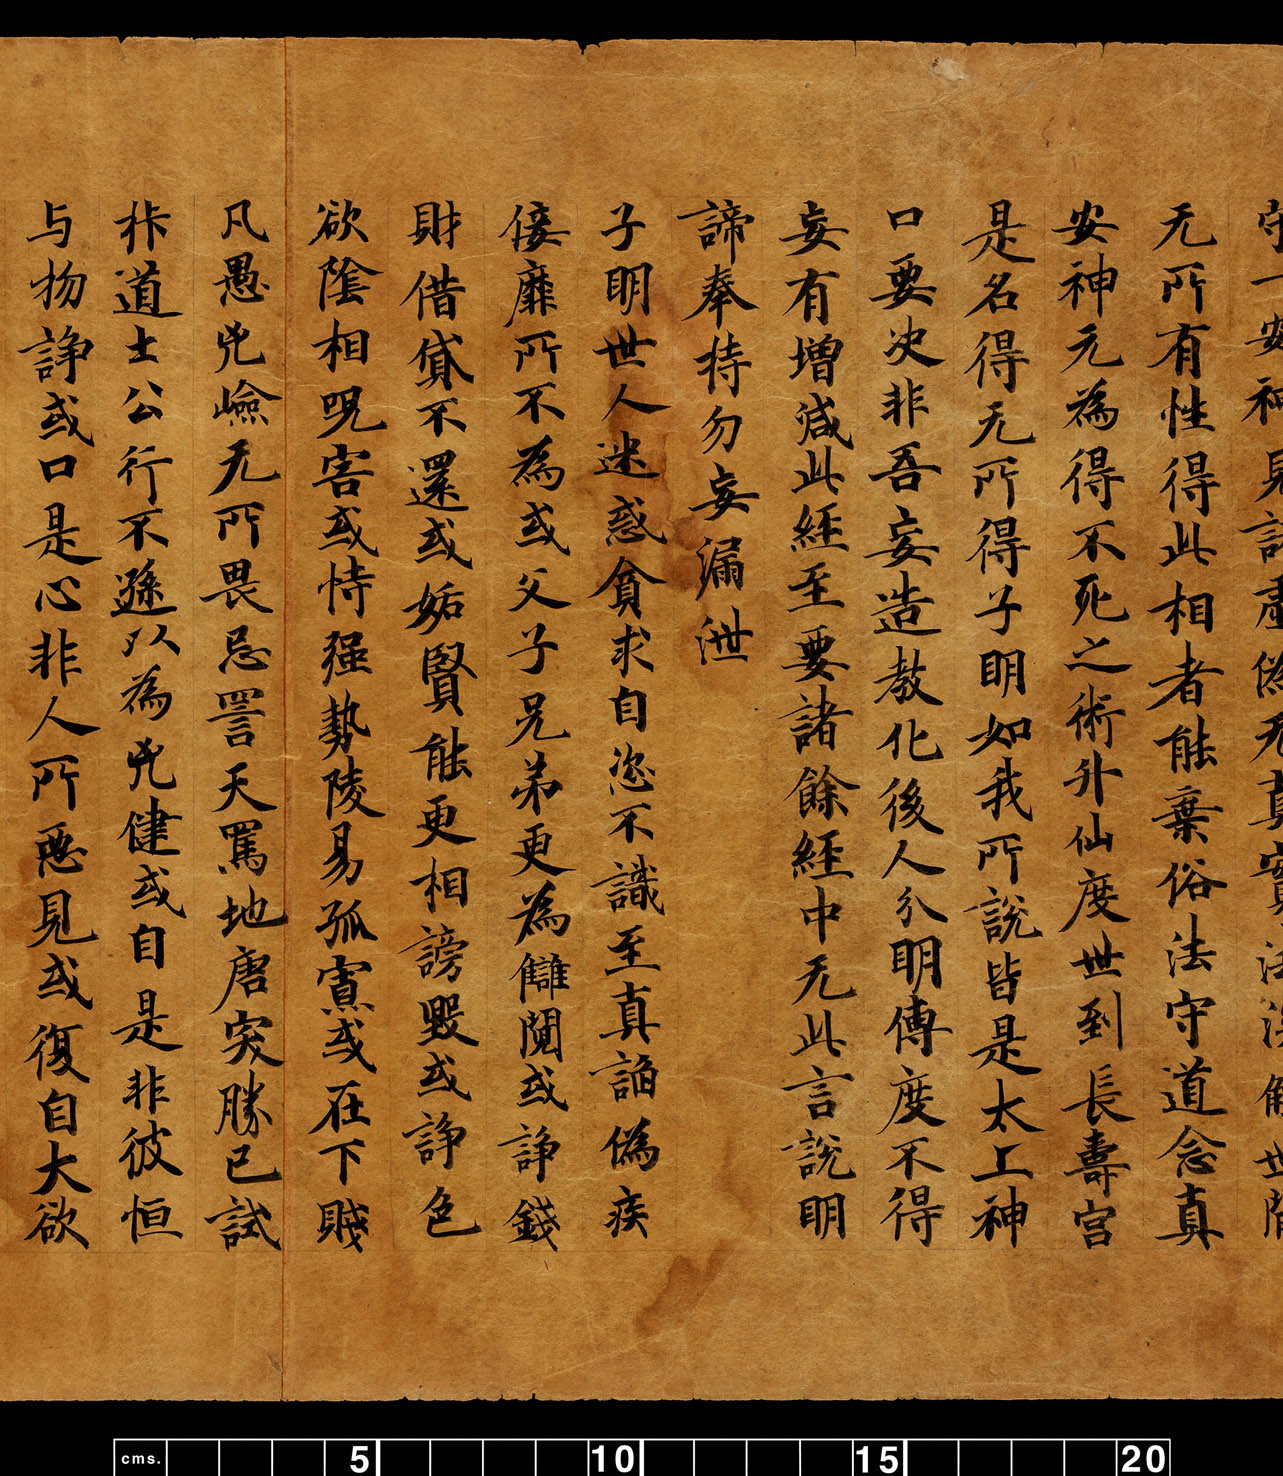 守一安神見諸虛偽无真實法
无所有性得此相者能棄俗法守道念真
安神元為得不死之術升仙度世到長壽宮
是名得无所得子明如我所說皆是太上神
口要决非吾妄造教化後人分明傳度不得
妄有增減此經至要諸餘經中无此言說明
諦奉持勿妄漏泄
子明世人迷惑貪求自恣不識至真諂偽疾
佞靡所不為或父子兄弟更為讎鬩或諍錢
財借貸不還或姤賢能更相謗毀或諍色
欲陰相呪害或恃强勢陵易孤寡或在下賤
凡愚兇嶮无所畏忌詈天罵地唐突勝已試
柞道士公行不遜以為兇健或自是非彼恒
与物諍或口是心非人所惡見或復自大欲
cms. 5 10 15 20